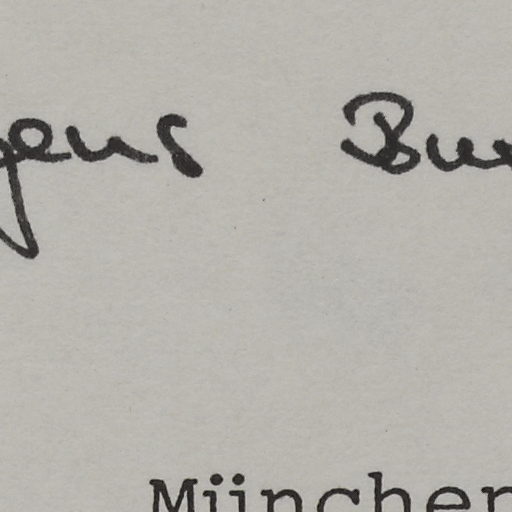 gens Bu
München